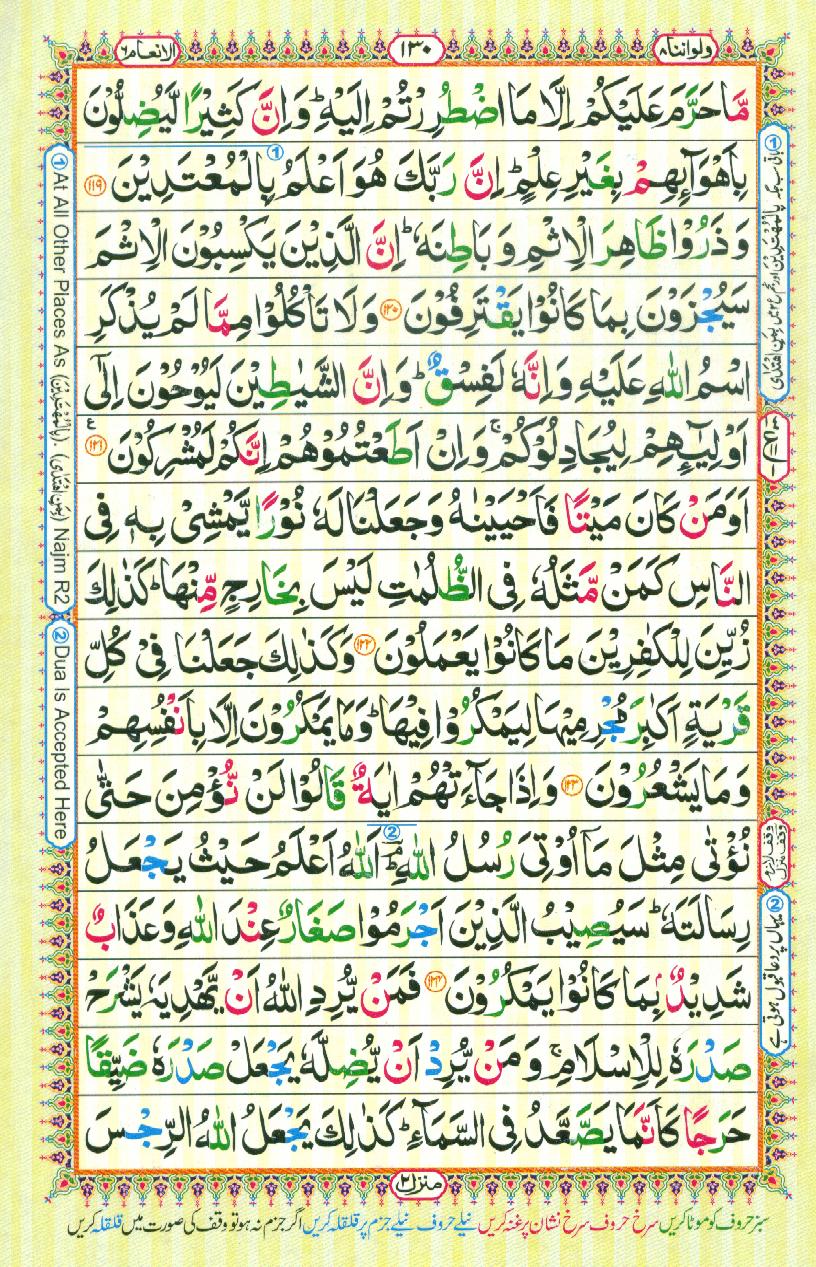 ولواننا ۸
۱۳۰
الانعام ۶
مَّا حَرَّمَ عَلَیْكُمْ اِلَّا مَا اضْطُرِرْتُمْ اِلَیْهِ ؕ وَاِنَّ كَثِیْرًا لَّیُضِلُّوْنَ
بِاَهْوَآىِٕهِمْ بِغَیْرِ عِلْمٍ ؕ اِنَّ رَبَّكَ هُوَ اَعْلَمُ بِالْمُعْتَدِیْنَ ۝۱۱۹
وَذَرُوْا ظَاهِرَ الْاِثْمِ وَبَاطِنَهٗ ؕ اِنَّ الَّذِیْنَ یَكْسِبُوْنَ الْاِثْمَ
سَیُجْزَوْنَ بِمَا كَانُوْا یَقْتَرِفُوْنَ ۝۱۲۰ وَلَا تَاْكُلُوْا مِمَّا لَمْ یُذْكَرِ
اسْمُ اللّٰهِ عَلَیْهِ وَاِنَّهٗ لَفِسْقٌ ؕ وَاِنَّ الشَّیٰطِیْنَ لَیُوْحُوْنَ اِلٰۤی
اَوْلِیٰٓـِٕهِمْ لِیُجَادِلُوْكُمْ ۚ وَاِنْ اَطَعْتُمُوْهُمْ اِنَّكُمْ لَمُشْرِكُوْنَ ۝۱۲۱
اَوَمَنْ كَانَ مَیْتًا فَاَحْیَیْنٰهُ وَجَعَلْنَا لَهٗ نُوْرًا یَّمْشِیْ بِهٖ فِی
النَّاسِ كَمَنْ مَّثَلُهٗ فِی الظُّلُمٰتِ لَیْسَ بِخَارِجٍ مِّنْهَا ؕ كَذٰلِكَ
زُیِّنَ لِلْكٰفِرِیْنَ مَا كَانُوْا یَعْمَلُوْنَ ۝۱۲۲ وَكَذٰلِكَ جَعَلْنَا فِیْ كُلِّ
قَرْیَةٍ اَكٰبِرَ مُجْرِمِیْهَا لِیَمْكُرُوْا فِیْهَا ؕ وَمَا یَمْكُرُوْنَ اِلَّا بِاَنْفُسِهِمْ
وَمَا یَشْعُرُوْنَ ۝۱۲۳ وَاِذَا جَآءَتْهُمْ اٰیَةٌ قَالُوْا لَنْ نُّؤْمِنَ حَتّٰی
نُؤْتٰی مِثْلَ مَاۤ اُوْتِیَ رُسُلُ اللّٰهِ ؔۘ اَللّٰهُ اَعْلَمُ حَیْثُ یَجْعَلُ
رِسَالَتَهٗ ؕ سَیُصِیْبُ الَّذِیْنَ اَجْرَمُوْا صَغَارٌ عِنْدَ اللّٰهِ وَعَذَابٌ
شَدِیْدٌۢ بِمَا كَانُوْا یَمْكُرُوْنَ ۝۱۲۴ فَمَنْ یُّرِدِ اللّٰهُ اَنْ یَّهْدِیَهٗ یَشْرَحْ
صَدْرَهٗ لِلْاِسْلَامِ ۚ وَمَنْ یُّرِدْ اَنْ یُّضِلَّهٗ یَجْعَلْ صَدْرَهٗ ضَیِّقًا
حَرَجًا كَاَنَّمَا یَصَّعَّدُ فِی السَّمَآءِ ؕ كَذٰلِكَ یَجْعَلُ اللّٰهُ الرِّجْسَ
منزل ۲
سبز حروف کو موٹا کریں سرخ حروف سرخ نشان پر غنہ کریں نیلے حروف نیلے جزم پر قلقلہ کریں اگر جزم نہ ہو تو وقف کی صورت میں قلقلہ کریں
① At All Other Places As (بِالْمُهْتَدِيْنَ), (بِمَنِ اهْتَدٰى) Najm R2
② Dua is Accepted Here
② یہاں پر دعا قبول ہوتی ہے